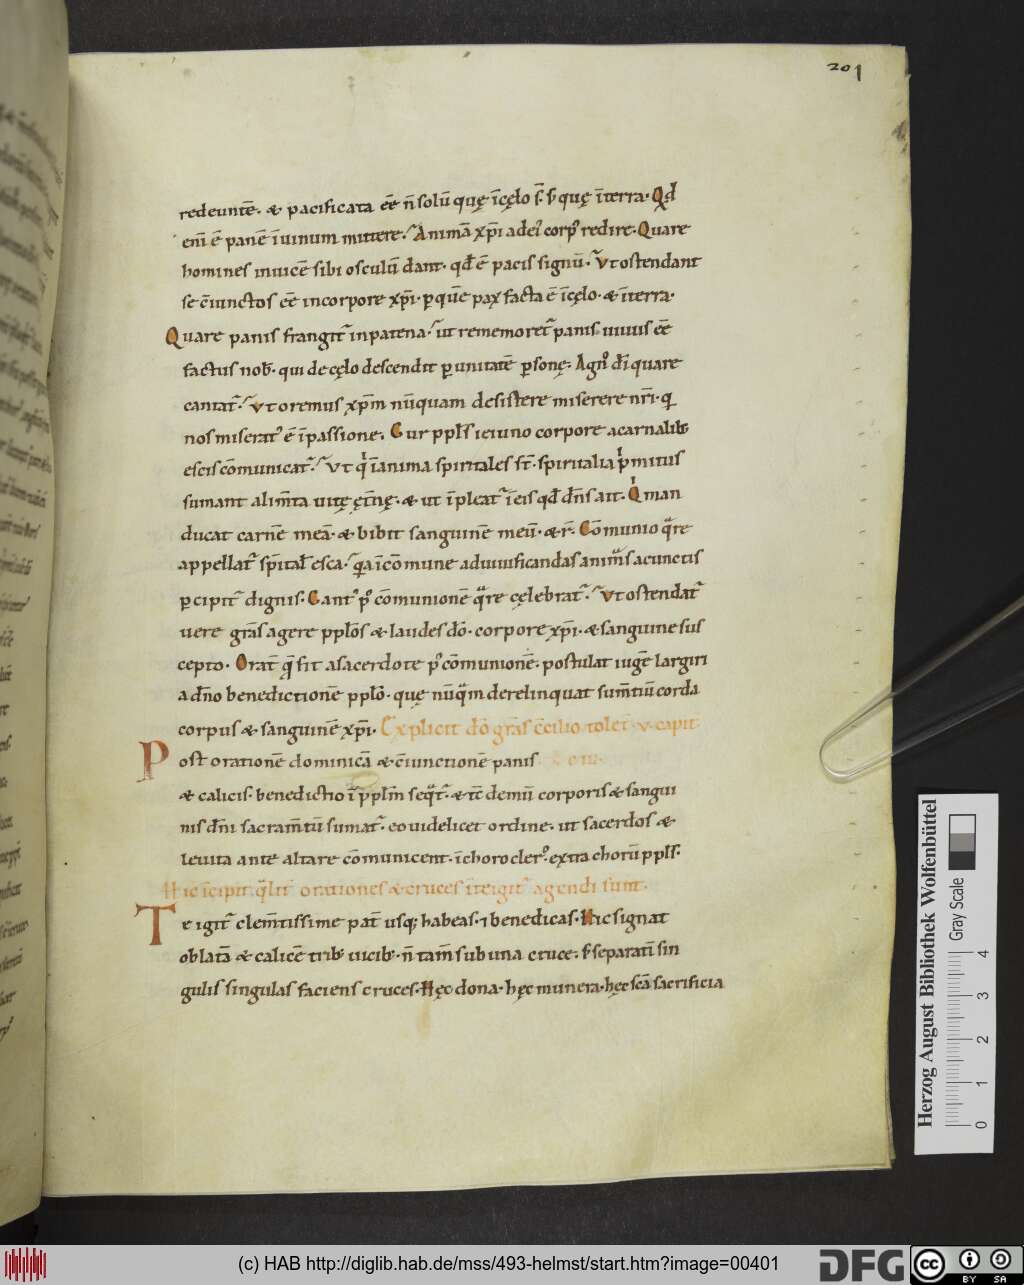 201
redeuntē. & pacificata eē n̄ solū quę īcęlo s̄. s; quę īterra. Qd̄
enī ē panē ī uinum mittere. Animā xp̄i ad ei corp᷒ redire. Quare
homines inuicē sibi osculū dant. qd̄ ē pacis signū. Vt ostendant
se c̄iunctos eē incorpore xp̄i. ꝑ quē pax facta ē īcęlo. & īterra.
Quare panis frangit᷑ inpatena. ut rememoret᷑ panis uiuus eē
factus nob̄. qui de cęlo descendit ꝑ unitatē ꝑsonę. Agn᷒ dī quare
cantat᷑. Vt oremus xp̄m nūquam desistere miserere nr̄i. q
nos miserat᷒ ē īpassione. Cur ppl̄s ieiuno corpore a carnalib᷒
escis cōmunicat᷑. Vt q īanima spiritales st̄. spiritalia pͥmitus
sumant alim̄ta uitę ęt̄nę. & ut īpleat᷑ īeis qd̄ dn̄s ait. Qͥ man
ducat carnē meā. & bibit sanguinē meū. & r̄. Cōmunio qͣre
appellat᷑ sp̄ital̄ esca. qa īcōmune aduiuificandas animͣs acunctis
ꝑcipit᷑ dignis. Cant᷒ p᷒ cōmunionē qͣre cęlebrat᷑. Vt ostendat᷑
uere grās agere ppl̄os & laudes dō. corpore xp̄i. & sanguine sus
cepto. Orat̄ q̄ fit a sacerdote p᷒ cōmunionē. postulat iugē largiri
a dn̄o benedictionē ppl̄o. quę nūqͣm derelinquat sum̄tiū corda
corpus & sanguinē xp̄i. Explicit dō grās c̄cilio tolet̄ v capit
Post orationē dominicā & c̄iunctionē panis
& calicis. benedictio ī ppl̄m seqͣt᷑. & tc̄ demū corporis & sangui
nis dn̄i sacram̄tū sumat᷑. eo uidelicet ordine. ut sacerdos &
leuita ante altare cōmunicent. īchoro cler᷒. extra chorū ppl̄s.
Hic īcipit qͣlit᷑ orationes & cruces īteigit᷑ agendi sunt.
Te igit᷑ clem̄tissime pat̄ usq; habeas. ⁊ benedicas. Hic signat
oblatā & calicē trib᷒ uicib᷒. n̄ tam̄ sub una cruce. s; separatī sin
gulis singulas faciens cruces. Hęc dona. hęc munera. hęc scā sacrificia
Herzog August Bibliothek Wolfenbüttel
Gray Scale
0 1 2 3 4
(c) HAB http://diglib.hab.de/mss/493-helmst/start.htm?image=00401
DFG
cc BY SA